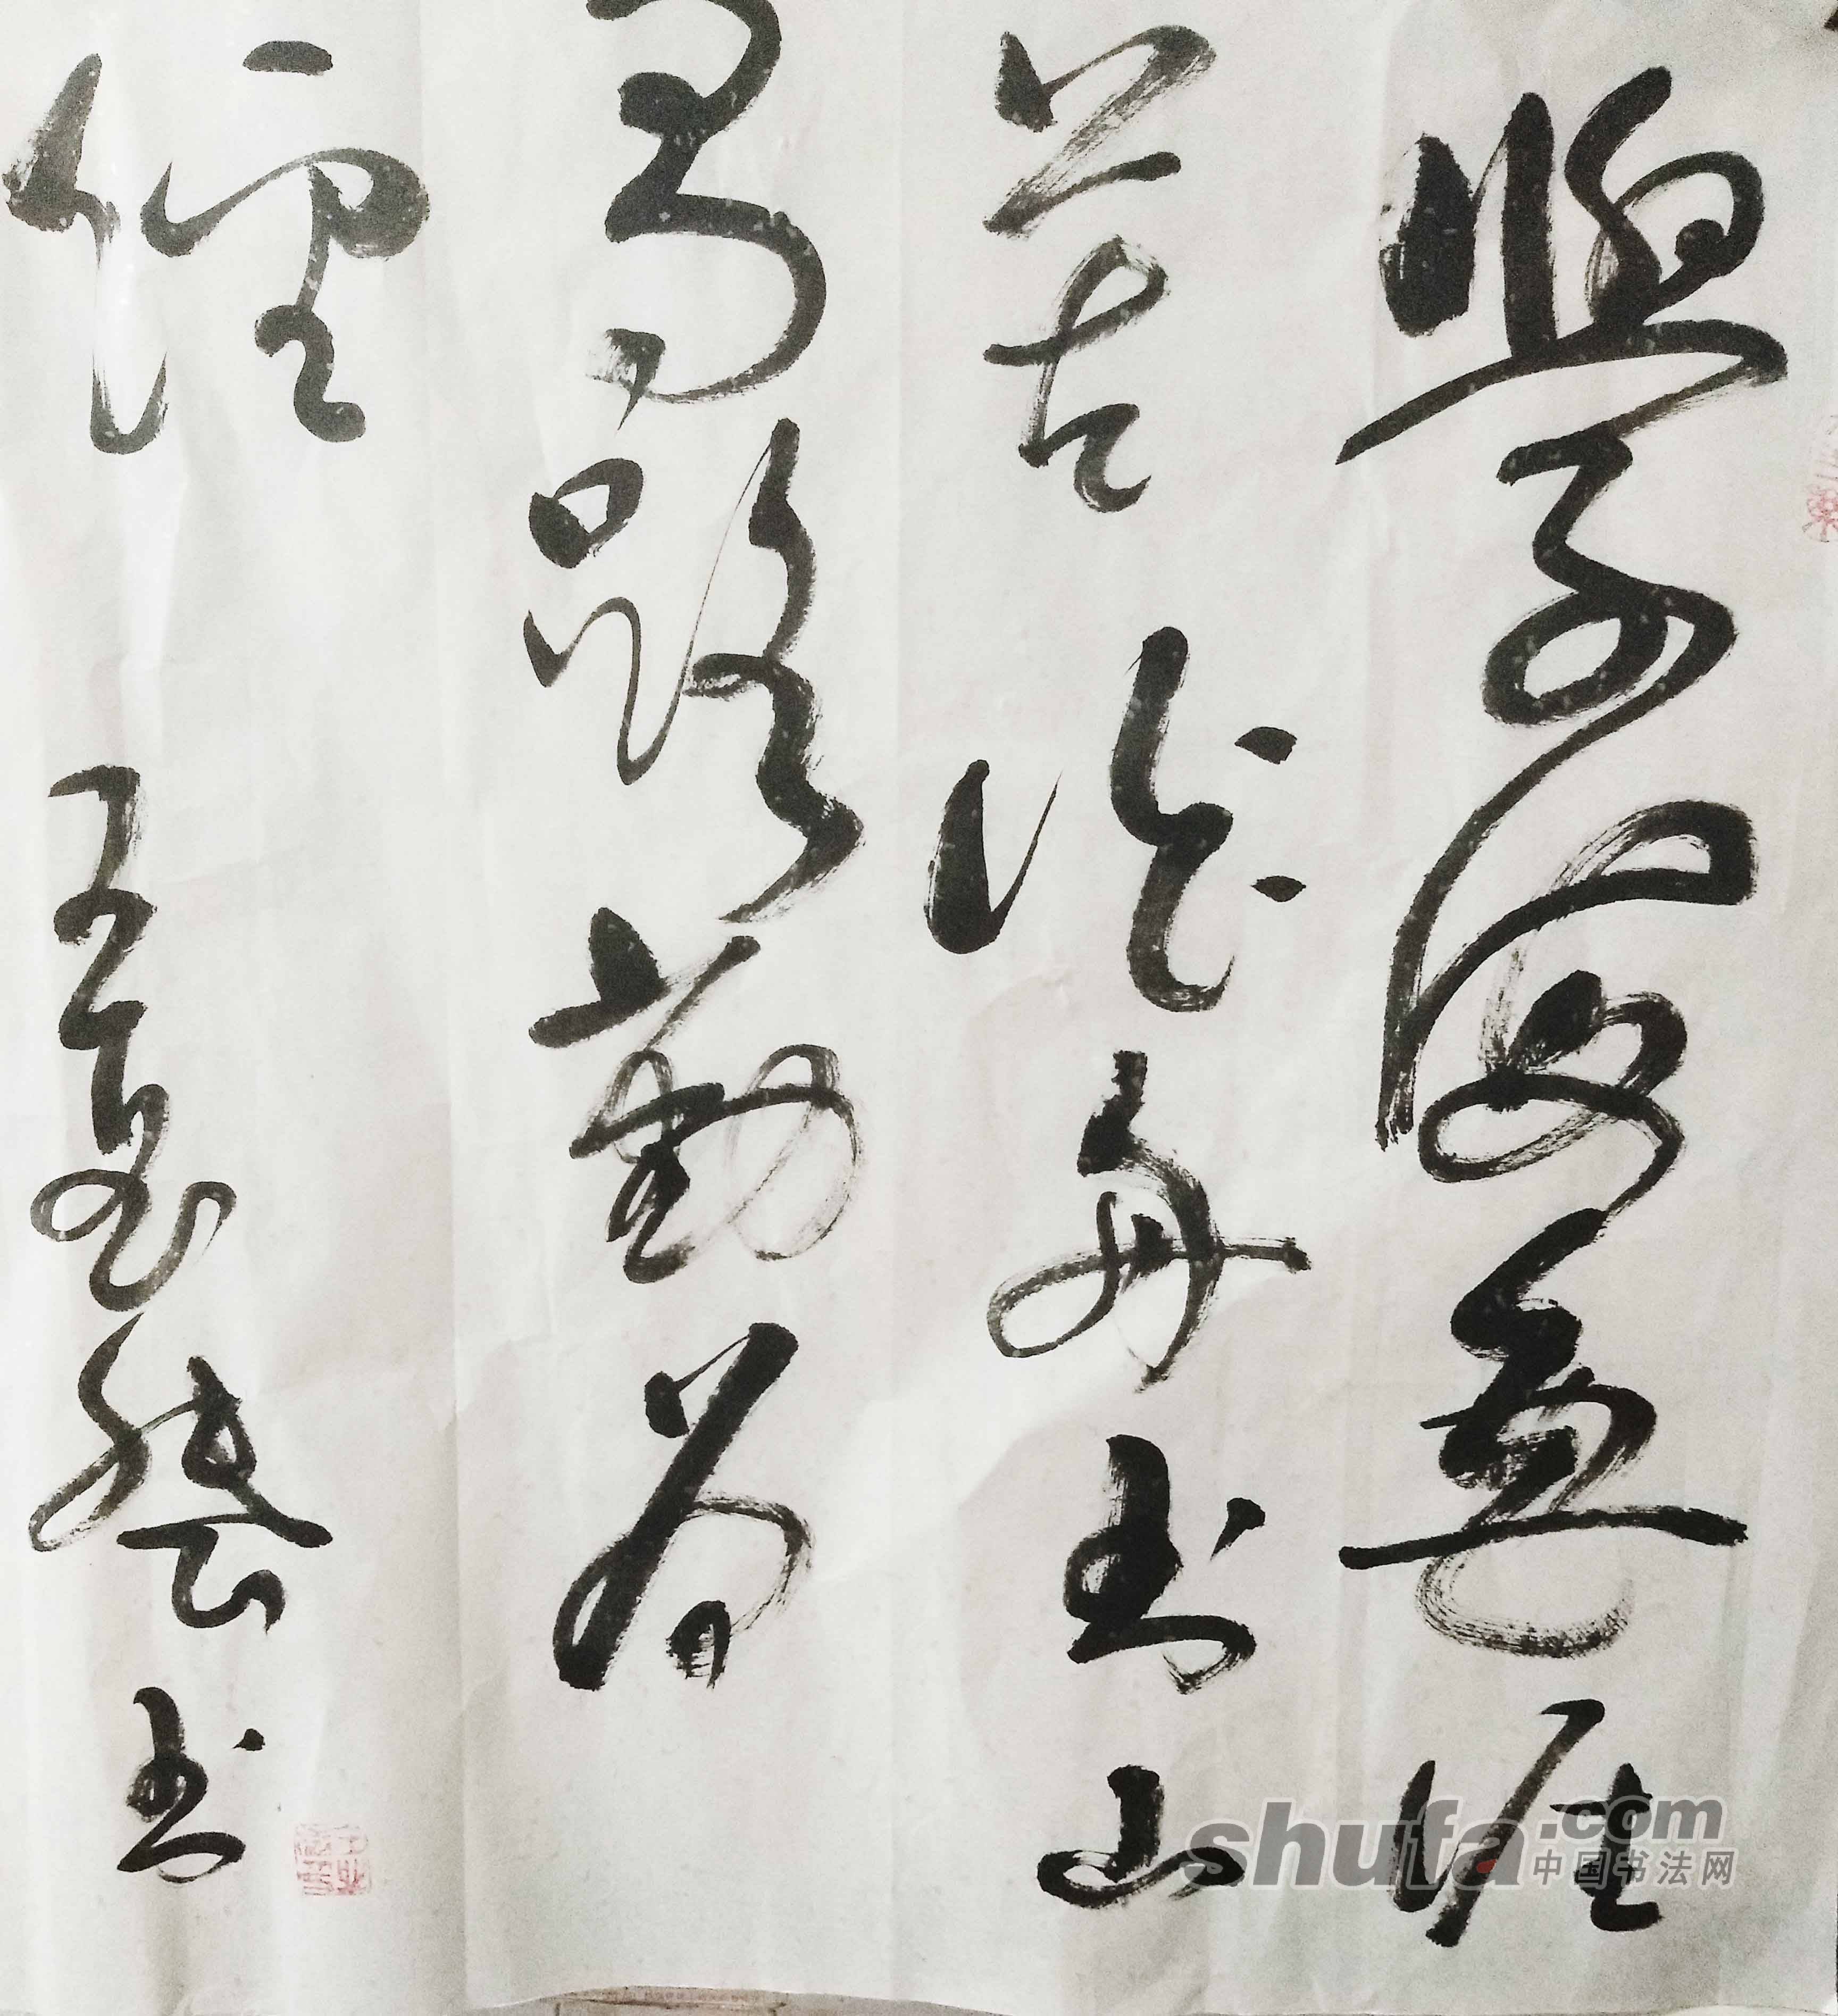 學海無涯
苦作舟书山
有路勤为
徑
书
shufa.com
中国书法网